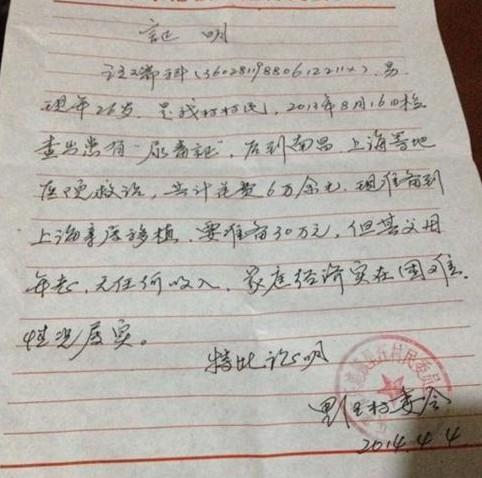 证明
科(36028119880612211x).男
现年26岁.是我村村民,2013年8月16日检
查出患有"尿毒证",后到南昌、上海等地
医院救治,共计花费6万余元.现准备到
上海肾移植.要准备30万元,但其父母
年老,无任何收入.家庭经济实在困难.
情况属实。
特此证明
村民委员
村委会
2014.4.4